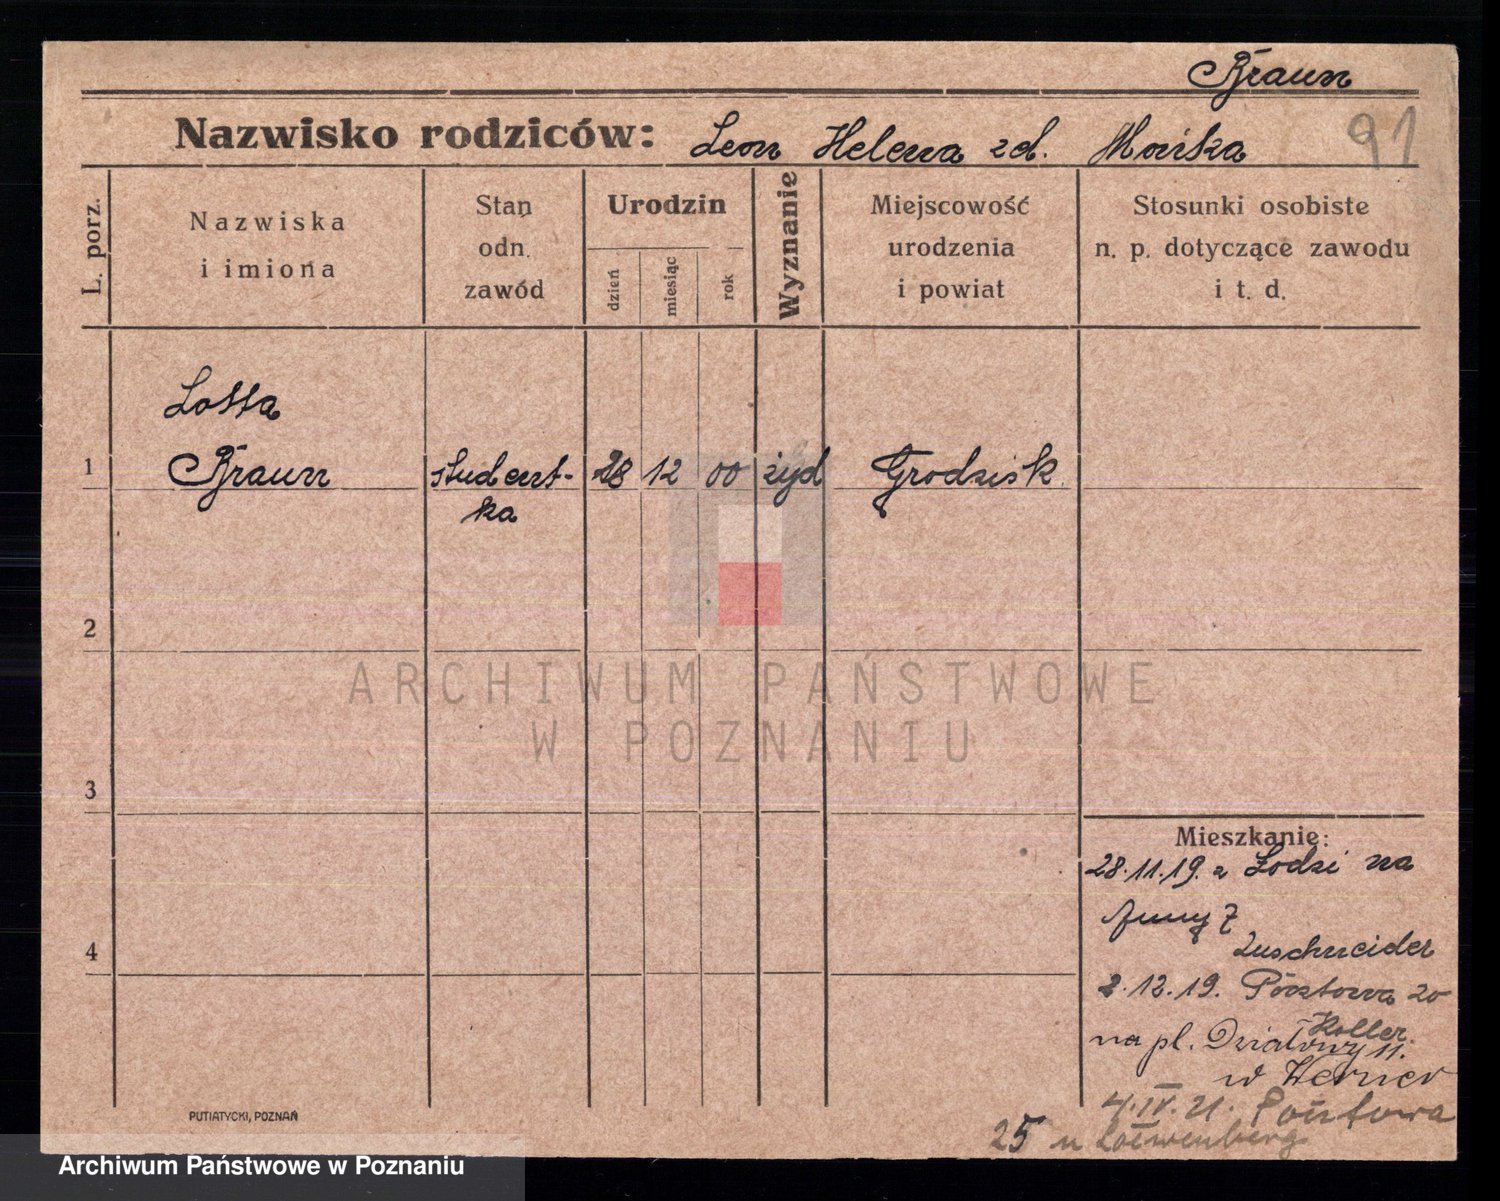 Braun
Nazwisko rodziców: Leon Helena zd. Mońka
91
L. porz.
Nazwiska
i imiona
Stan
odn.
zawód
Urodzin
dzień
miesiąc
rok
Wyznanie
Miejscowość
urodzenia
i powiat
Stosunki osobiste
n. p. dotyczące zawodu
i t. d.
Lotta
1 Braun student- 28 12 00 żyd Grodzisk
ka
2
ARCHIWUM PAŃSTWOWE
W POZNANIU
3
Mieszkanie:
28.11.19. z Łodzi na
7
Luschneider
4
2.12.19. Pocztowa 20
Koller
na pl. Działowy 11.
w Werner
4.IV.21. Pocztowa
25 u Loewenberg
PUTIATYCKI, POZNAŃ
Archiwum Państwowe w Poznaniu